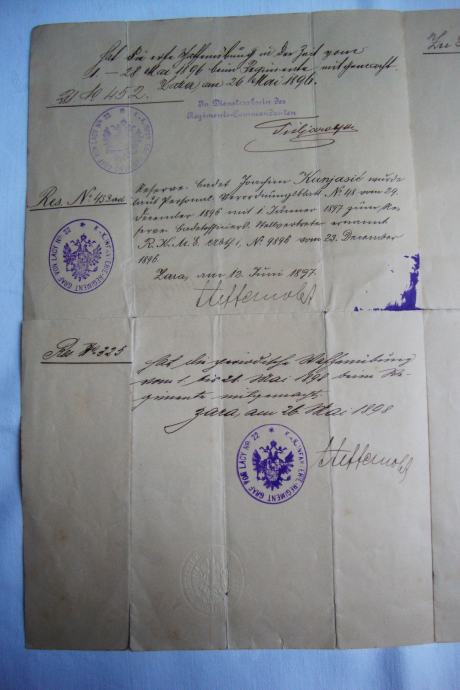 Zu
hat die erste Waffenübung in der Zeit vom
1 – 28 Mai 1896 beim Regimente mitgemacht.
Zara, am 26 Mai 1896.
№ 452.
In Dienstabwesenheit des
Regiments-Commandanten
Res. № 453 ad
Reserve-Cadet Joachim Kunjasić wurde
laut Personal-Verordnungsblatt № 48 vom 29.
December 1896 mit 1. Jänner 1897 zum Re-
serve Cadetofficiers Stellvertreter ernannt
R. K. M. E. Abth. 1, № 9896 vom 23. December
1896
Zara, am 12 Juni 1897.
K. K. INFANTERIE-REGIMENT GRAF VON LACY NR. 22
Res № 325
hat die periodische Waffenübung
vom 1 bis 28 Mai 1898 beim Re-
gimente mitgemacht.
Zara, am 26 Mai 1898
K. K. INFANTERIE-REGIMENT GRAF VON LACY NR. 22